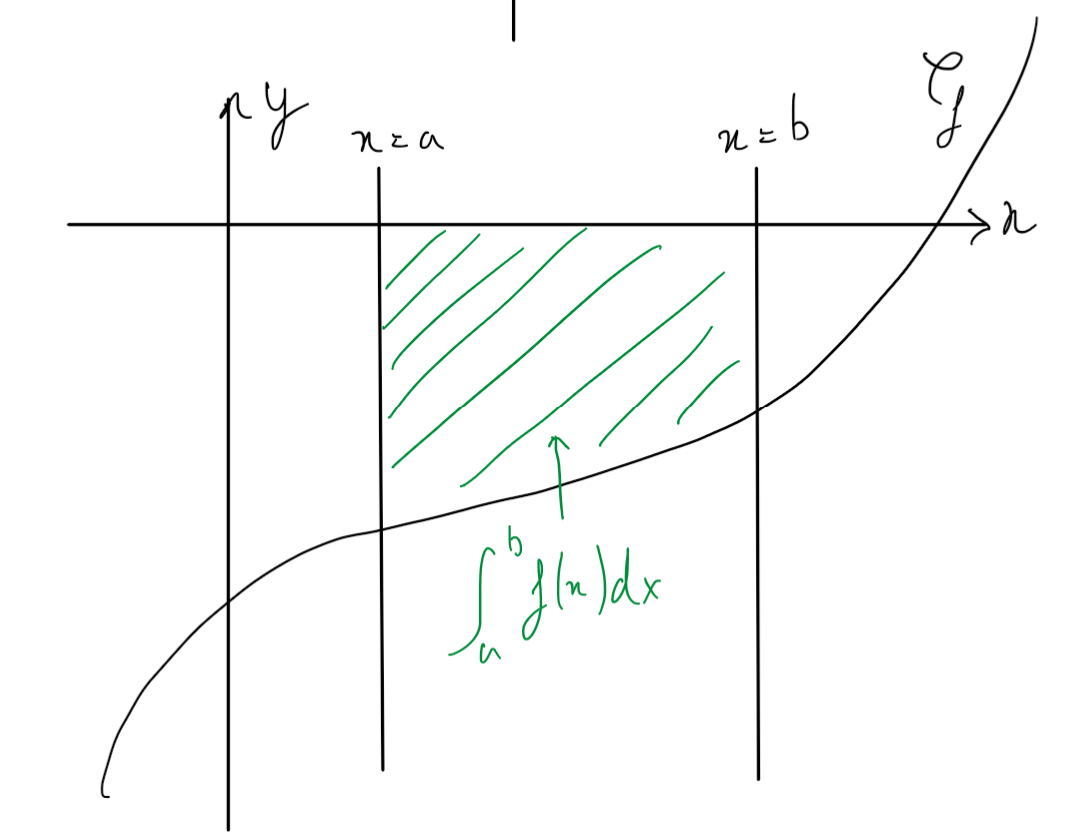 y
x = a
x = b
𝒞f
x
∫ₐᵇ f(x)dx